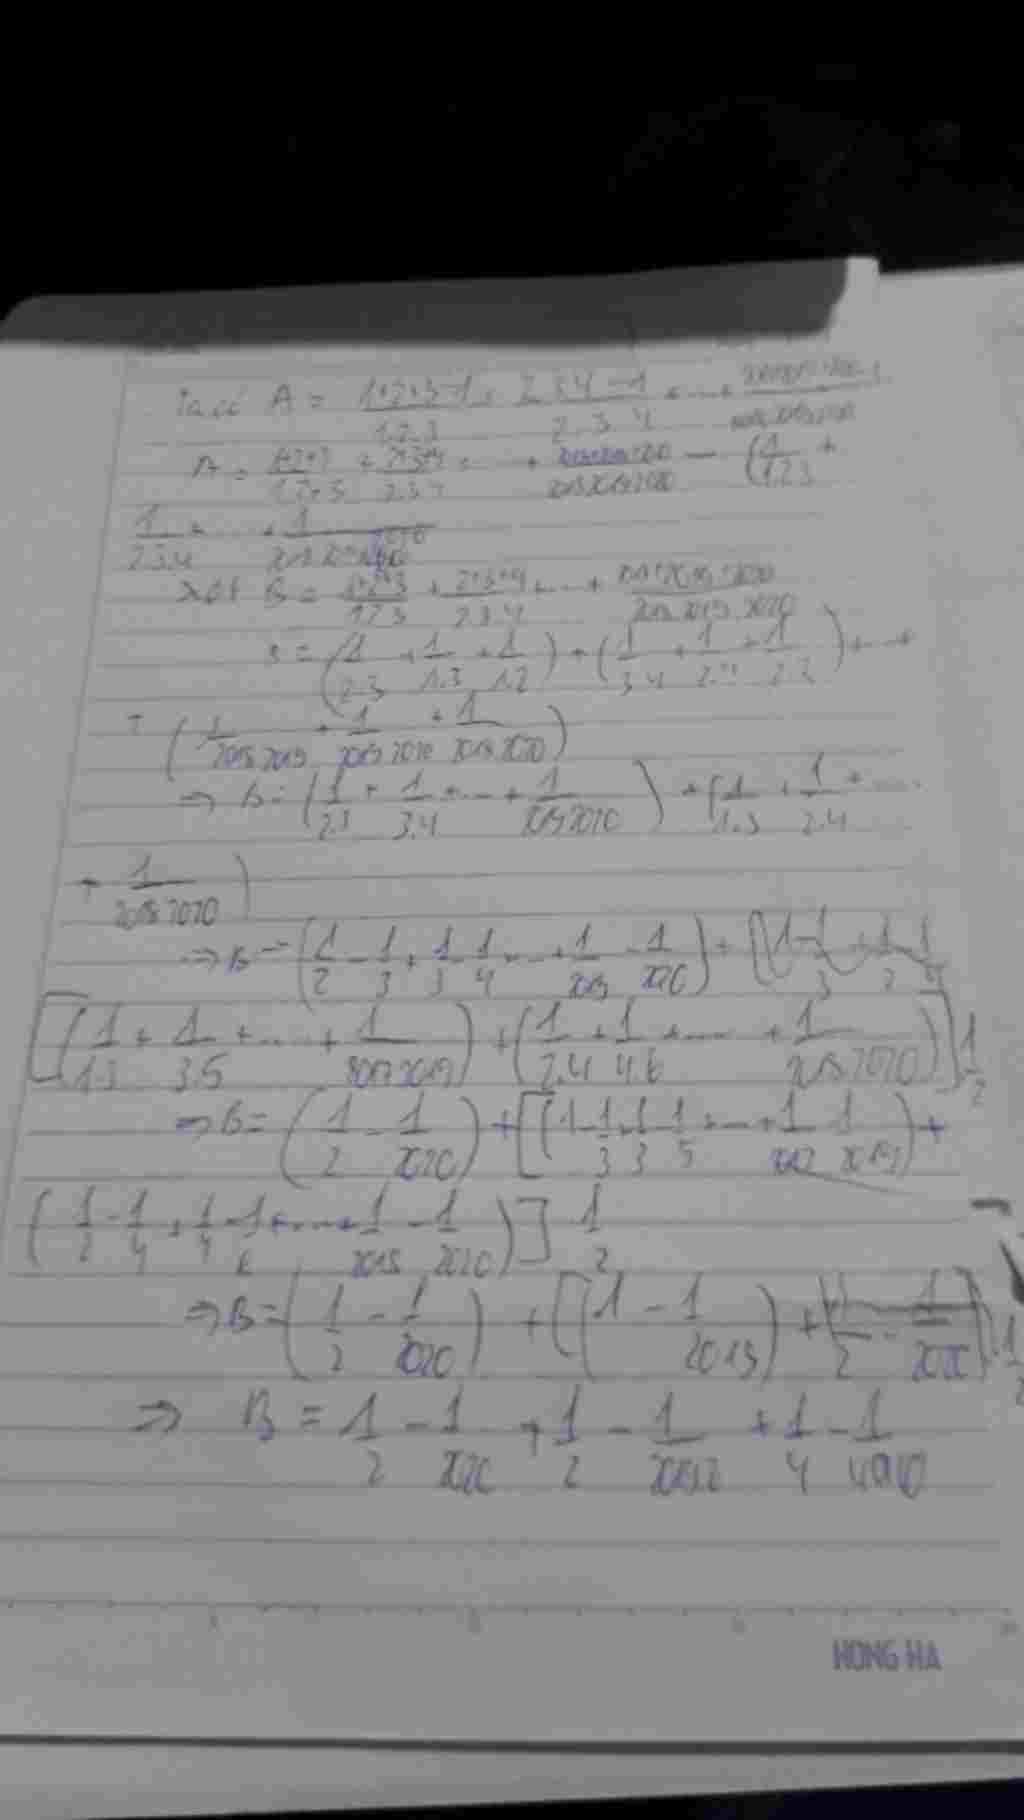 Ta có A = (1+2+3-1)/(1.2.3) + (2+3+4-1)/(2.3.4) + ... +
A = (1+2+3)/(1.2.3) + (2+3+4)/(2.3.4) + ... + − (1/(1.2.3) +
1/(2.3.4) + ... + 1/(2018.2019.2020)
Xét B = (1+2+3)/(1.2.3) + (2+3+4)/(2.3.4) + ... + (2018+2019+2020)/(2018.2019.2020)
B = (1/(2.3) + 1/(1.3) + 1/(1.2)) + (1/(3.4) + 1/(2.4) + ) + ... +
(1/(2018.2019) + 1/(2019.2020) + 1/(2018.2020))
⇒ B = (1/(2.3) + 1/(3.4) + ... + 1/(2019.2020)) + (1/(1.3) + 1/(2.4) + ...
+ 1/(2018.2020))
⇒ B = (1/2 − 1/3 + 1/3 − 1/4 + ... + 1/2019 − 1/2020) +
[(1/(1.3) + 1/(3.5) + ... + 1/(2017.2019)) + (1/(2.4) + 1/(4.6) + ... + 1/(2018.2020))] 1/2
⇒ B = (1/2 − 1/2020) + [(1 − 1/3 + 1/3 − 1/5 + ... + 1/2017 − 1/2019) +
(1/2 − 1/4 + 1/4 − 1/6 + ... + 1/2018 − 1/2020)] 1/2
⇒ B = (1/2 − 1/2020) + [(1 − 1/2019) + (1/2 − 1/2020)] . 1/2
⇒ B = 1/2 − 1/2020 + 1/2 − 1/(2019.2) + 1/4 − 1/4040
HONG HA